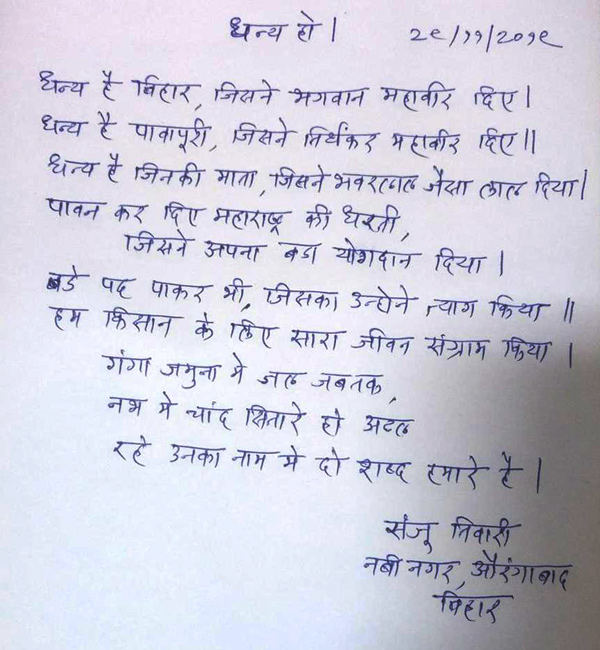 धन्य हो । २९/११/२०१९
धन्य है बिहार, जिसने भगवान महावीर दिए ।
धन्य है पावापूरी, जिसने तिर्थकर महावीर दिए ॥
धन्य है जिनकी माता, जिसने भवरलाल जैसा लाल दिया ।
पावन कर दिए महाराष्ट्र की धरती,
जिसने अपना बडा योगदान दिया ।
बडे पद पाकर भी, जिसका उन्होने त्याग किया ॥
हम किसान के लिए सारा जीवन संग्राम किया ।
गंगा जमुना मे जल जबतक,
नभ मे चांद सितारे हो अटल
रहे उनका नाम मे दो शब्द हमारे है ।
संजू तिवारी
नबी नगर, औरंगाबाद
बिहार